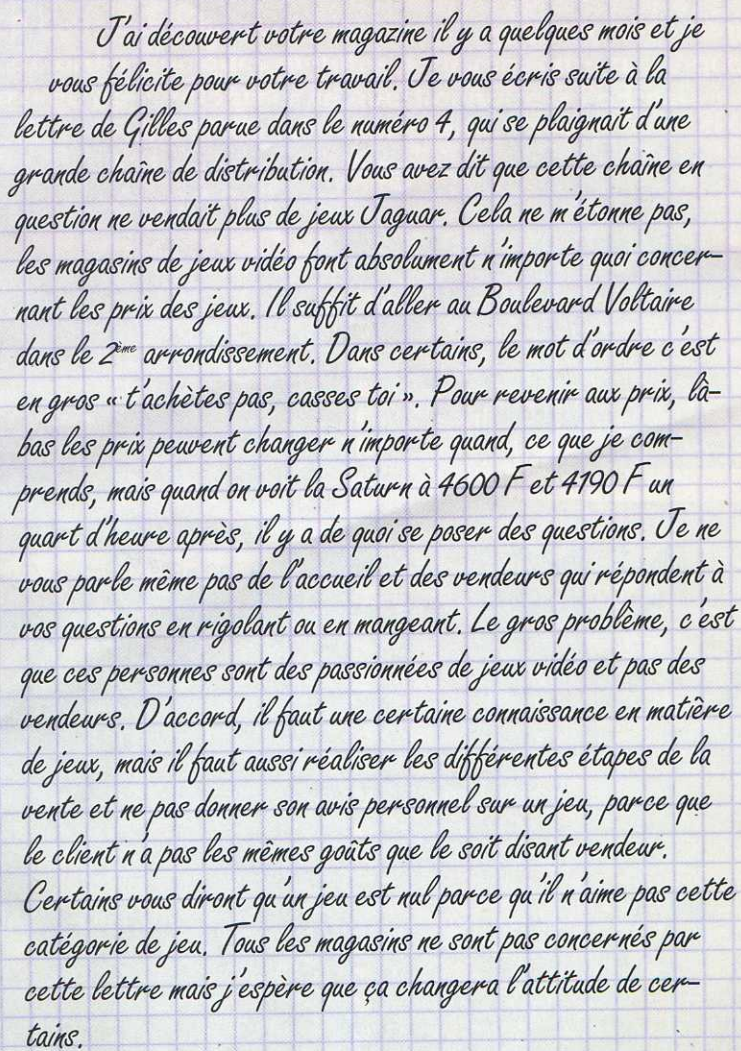 J'ai découvert votre magazine il y a quelques mois et je
vous félicite pour votre travail. Je vous écris suite à la
lettre de Gilles parue dans le numéro 4, qui se plaignait d'une
grande chaîne de distribution. Vous avez dit que cette chaîne en
question ne vendait plus de jeux Jaguar. Cela ne m'étonne pas,
les magasins de jeux vidéo font absolument n'importe quoi concer-
nant les prix des jeux. Il suffit d'aller au Boulevard Voltaire
dans le 2ème arrondissement. Dans certains, le mot d'ordre c'est
en gros « t'achètes pas, casses toi ». Pour revenir aux prix, là-
bas les prix peuvent changer n'importe quand, ce que je com-
prends, mais quand on voit la Saturn à 4600 F et 4190 F un
quart d'heure après, il y a de quoi se poser des questions. Je ne
vous parle même pas de l'accueil et des vendeurs qui répondent à
vos questions en rigolant ou en mangeant. Le gros problème, c'est
que ces personnes sont des passionnées de jeux vidéo et pas des
vendeurs. D'accord, il faut une certaine connaissance en matière
de jeux, mais il faut aussi réaliser les différentes étapes de la
vente et ne pas donner son avis personnel sur un jeu, parce que
le client n'a pas les mêmes goûts que le soit disant vendeur.
Certains vous diront qu'un jeu est nul parce qu'il n'aime pas cette
catégorie de jeu. Tous les magasins ne sont pas concernés par
cette lettre mais j'espère que ça changera l'attitude de cer-
tains.